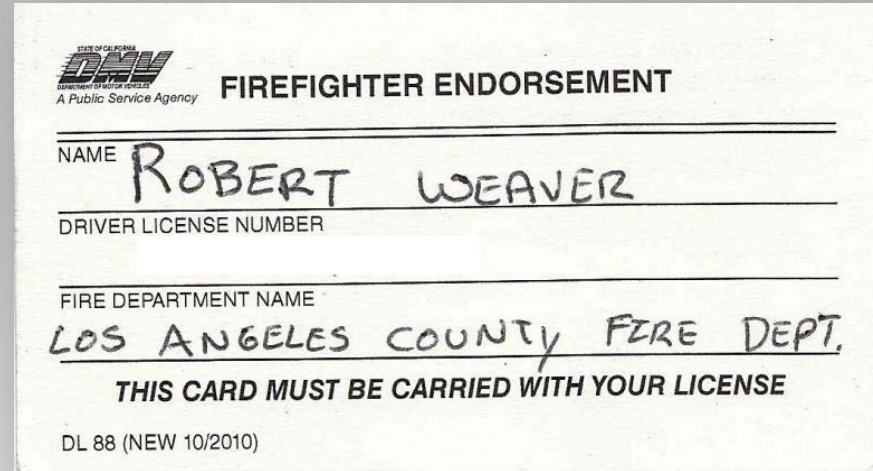 STATE OF CALIFORNIA
DMV
DEPARTMENT OF MOTOR VEHICLES
A Public Service Agency
FIREFIGHTER ENDORSEMENT
NAME
ROBERT WEAVER
DRIVER LICENSE NUMBER
FIRE DEPARTMENT NAME
LOS ANGELES COUNTY FIRE DEPT.
THIS CARD MUST BE CARRIED WITH YOUR LICENSE
DL 88 (NEW 10/2010)